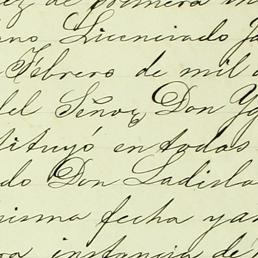 de primera in
ano Licenciado Ja
Febrero de mil
del Señor Don Yg
tituyó en todas
do Don Ladisla
misma fecha y an
ra instancia de